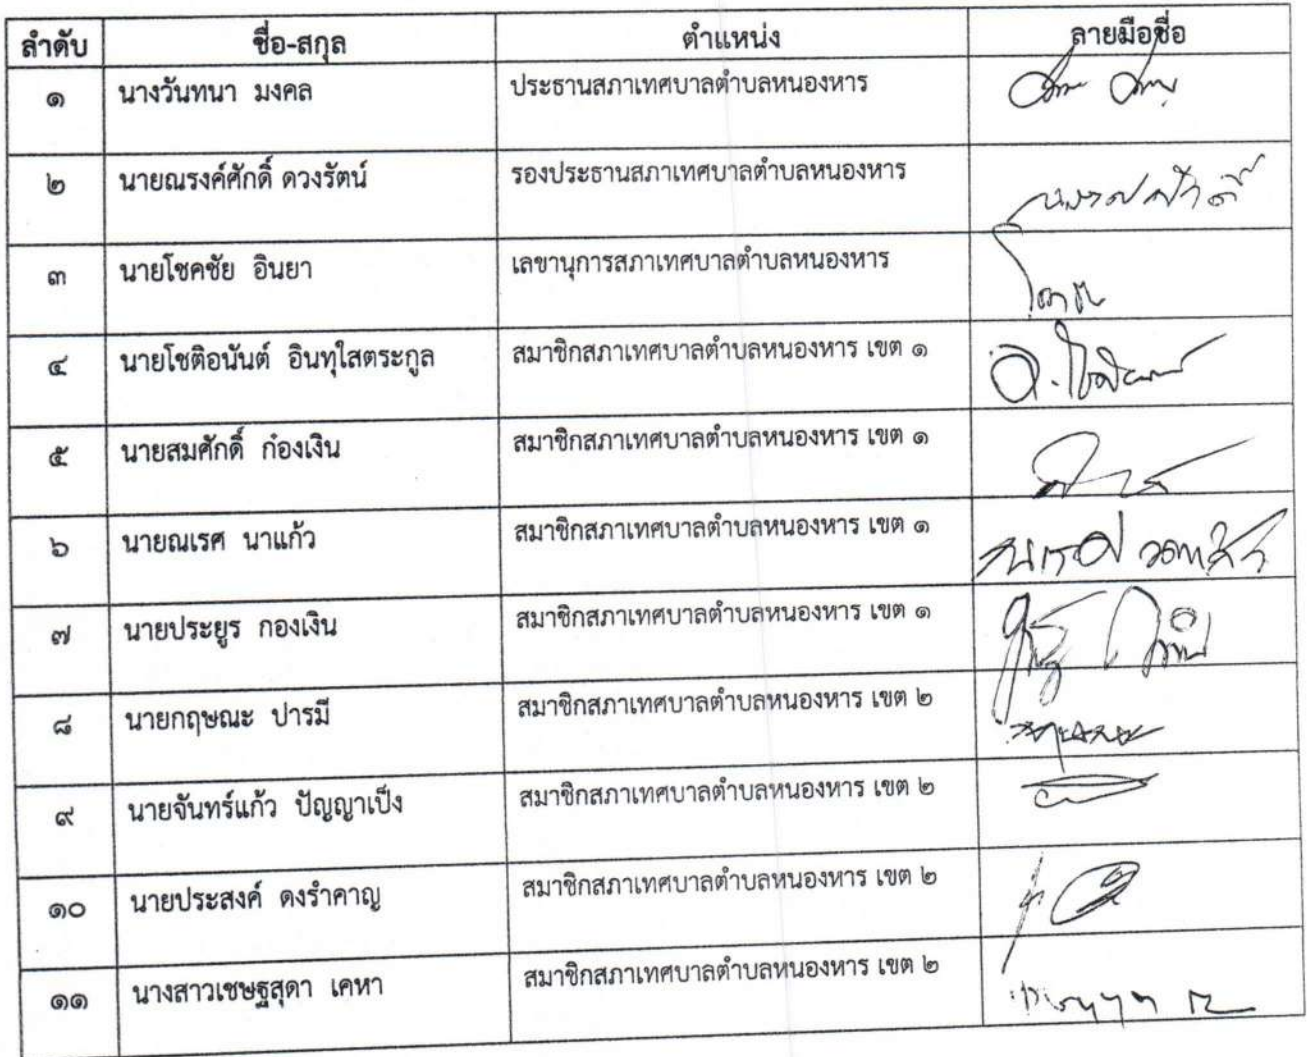 ลำดับ ชื่อ-สกุล ตำแหน่ง ลายมือชื่อ
๑ นางวันทนา มงคล ประธานสภาเทศบาลตำบลหนองหาร
๒ นายณรงค์ศักดิ์ ดวงรัตน์ รองประธานสภาเทศบาลตำบลหนองหาร ณรงค์ศักดิ์
๓ นายโชคชัย อินยา เลขานุการสภาเทศบาลตำบลหนองหาร
๔ นายโชติอนันต์ อินทุใสตระกูล สมาชิกสภาเทศบาลตำบลหนองหาร เขต ๑
๕ นายสมศักดิ์ ก๋องเงิน สมาชิกสภาเทศบาลตำบลหนองหาร เขต ๑
๖ นายณเรศ นาแก้ว สมาชิกสภาเทศบาลตำบลหนองหาร เขต ๑
๗ นายประยูร กองเงิน สมาชิกสภาเทศบาลตำบลหนองหาร เขต ๑
๘ นายกฤษณะ ปารมี สมาชิกสภาเทศบาลตำบลหนองหาร เขต ๒
๙ นายจันทร์แก้ว ปัญญาเป็ง สมาชิกสภาเทศบาลตำบลหนองหาร เขต ๒
๑๐ นายประสงค์ ดงรำคาญ สมาชิกสภาเทศบาลตำบลหนองหาร เขต ๒
๑๑ นางสาวเชษฐสุดา เคหา สมาชิกสภาเทศบาลตำบลหนองหาร เขต ๒